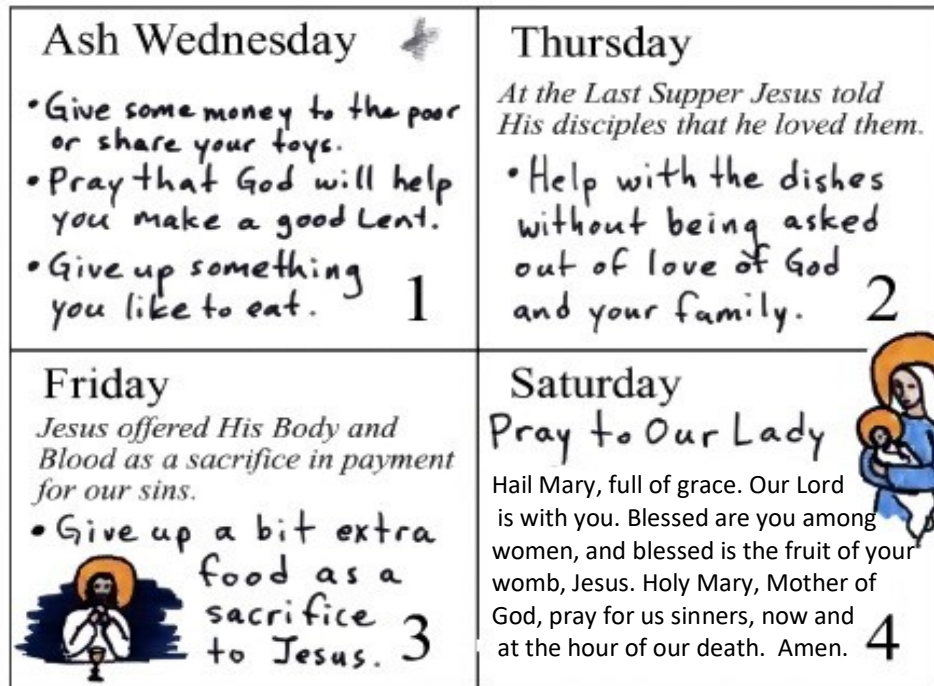 Ash Wednesday
• Give some money to the poor
or share your toys.
• Pray that God will help
you make a good Lent.
• Give up something
you like to eat.
1
Thursday
At the Last Supper Jesus told
His disciples that he loved them.
• Help with the dishes
without being asked
out of love of God
and your family.
2
Friday
Jesus offered His Body and
Blood as a sacrifice in payment
for our sins.
• Give up a bit extra
food as a
sacrifice
to Jesus.
3
Saturday
Pray to Our Lady
Hail Mary, full of grace. Our Lord
is with you. Blessed are you among
women, and blessed is the fruit of your
womb, Jesus. Holy Mary, Mother of
God, pray for us sinners, now and
at the hour of our death. Amen.
4